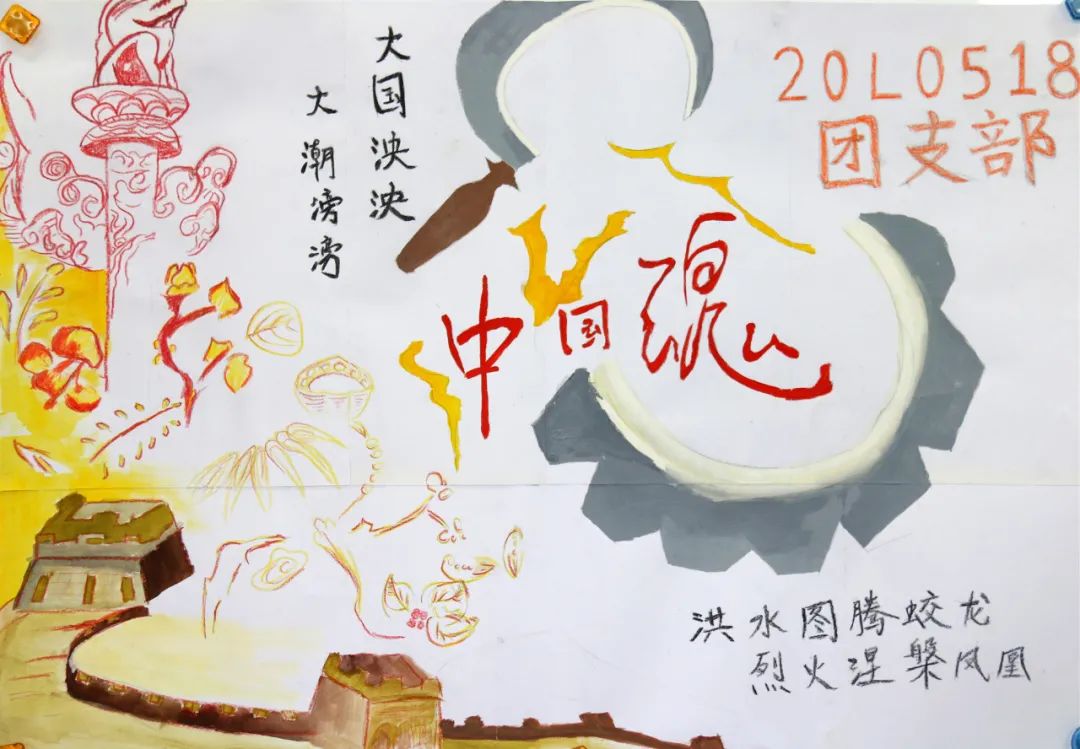 大国泱泱
大潮滂滂
20L0518
团支部
中国魂
洪水图腾蛟龙
烈火涅槃凤凰